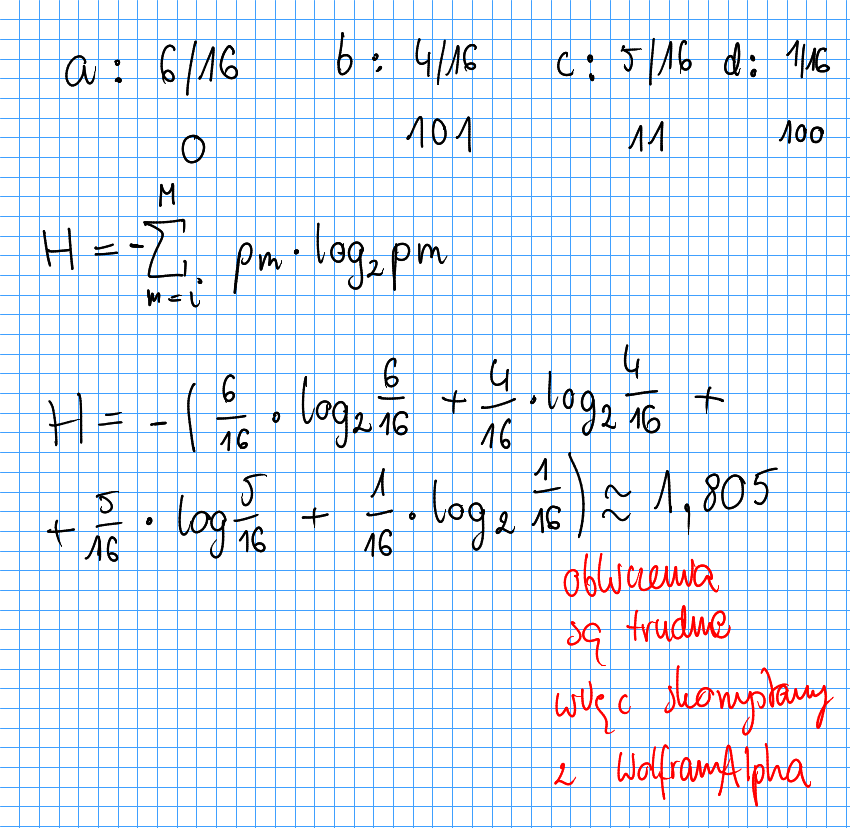 a : 6/16 b : 4/16 c : 5/16 d : 1/16
0 101 11 100
H = -∑_{m=i}^{M} pm · log₂ pm
H = - ( 6/16 · log₂ 6/16 + 4/16 · log₂ 4/16 +
+ 5/16 · log 5/16 + 1/16 · log₂ 1/16 ) ≈ 1,805
obliczenia
są trudne
więc skorzystamy
z WolframAlpha